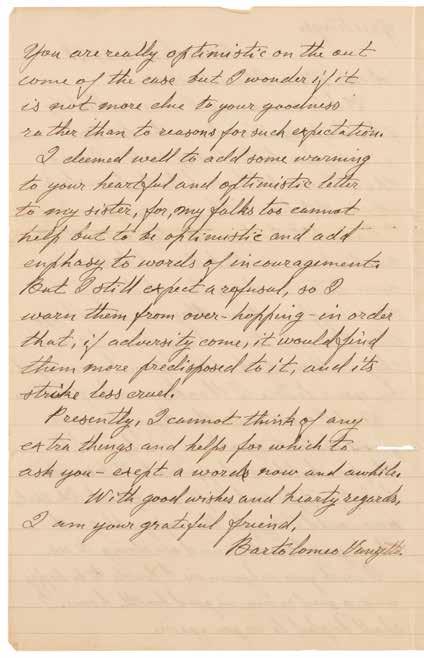 You are really optimistic on the out
come of the case but I wonder if it
is not more due to your goodness
rather than to reasons for such expectation.
I deemed well to add some warning
to your heartful and optimistic letter
to my sister, for, my folks too cannot
help but to be optimistic and add
enphasy to words of incouragement.
But I still expect a refusal, so I
warn them from over-hopping-in order
that, if adversity come, it would find
them more predisposed to it, and its
strike less cruel.
Presently, I cannot think of any
extra things and helps for which to
ask you - exept a words now and awhile.
With good wishes and hearty regards,
I am your grateful friend,
Bartolomeo Vanzetti.